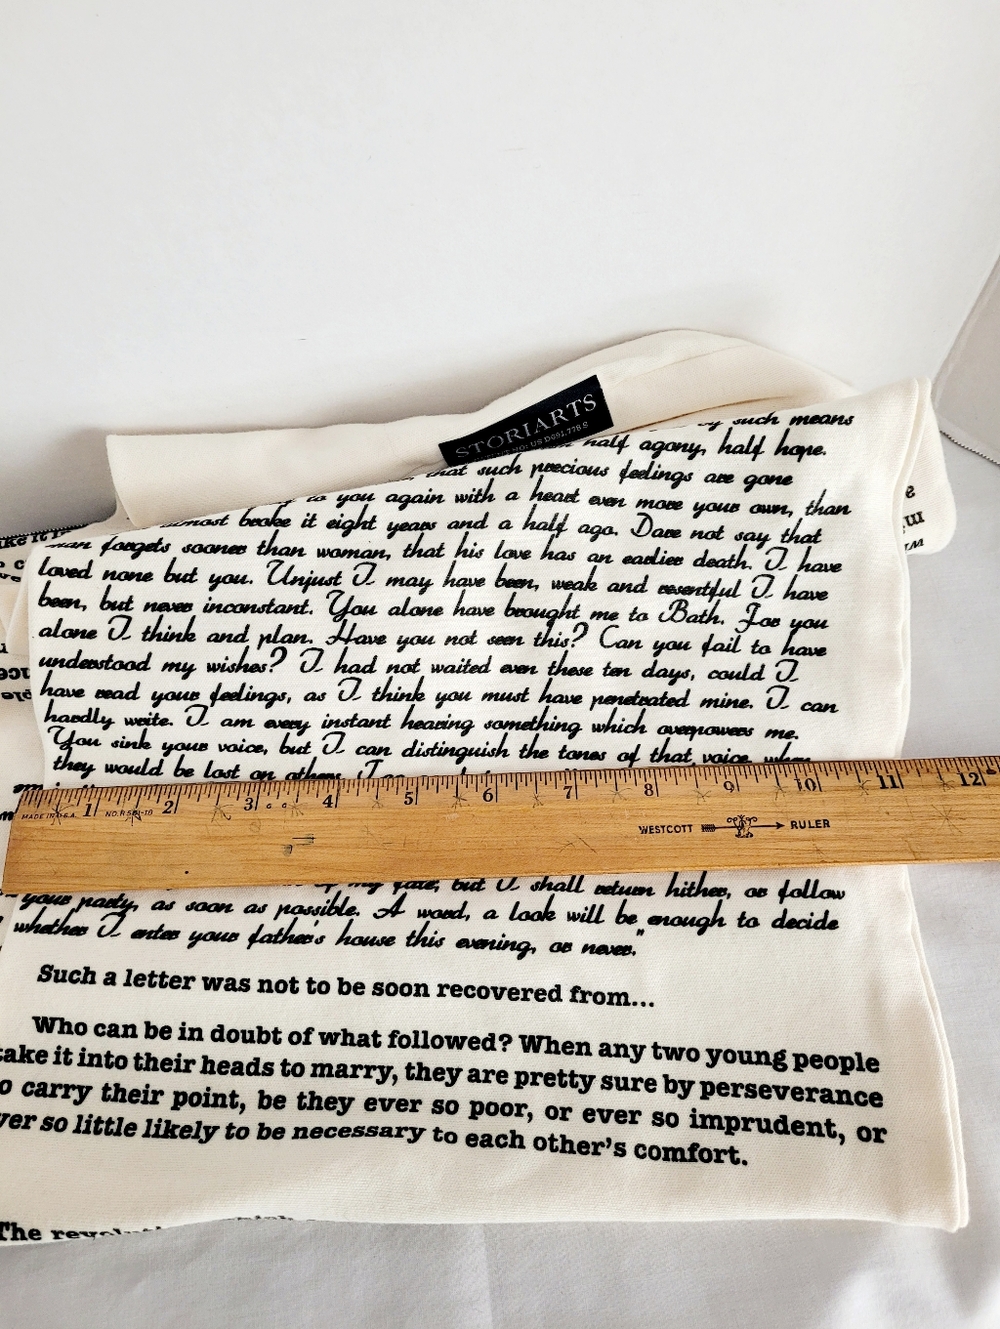 STORIARTS
such means
half agony, half hope.
such precious feelings are gone
to you again with a heart even more your own, than
almost broke it eight years and a half ago. Dare not say that
man forgets sooner than woman, that his love has an earlier death. I have
loved none but you. Unjust I may have been, weak and resentful I have
been, but never inconstant. You alone have brought me to Bath. For you
alone I think and plan. Have you not seen this? Can you fail to have
understood my wishes? I had not waited even these ten days, could I
have read your feelings, as I think you must have penetrated mine. I can
hardly write. I am every instant hearing something which overpowers me.
You sink your voice, but I can distinguish the tones of that voice when
they would be lost on others.
1 2 3 4 5 6 7 8 9 10 11 12
MADE IN U.S.A.
WESTCOTT RULER
my fate, but I shall return hither, or follow
your party, as soon as possible. A word, a look will be enough to decide
whether I enter your father's house this evening, or never."
Such a letter was not to be soon recovered from...
Who can be in doubt of what followed? When any two young people
take it into their heads to marry, they are pretty sure by perseverance
to carry their point, be they ever so poor, or ever so imprudent, or
ever so little likely to be necessary to each other's comfort.
The